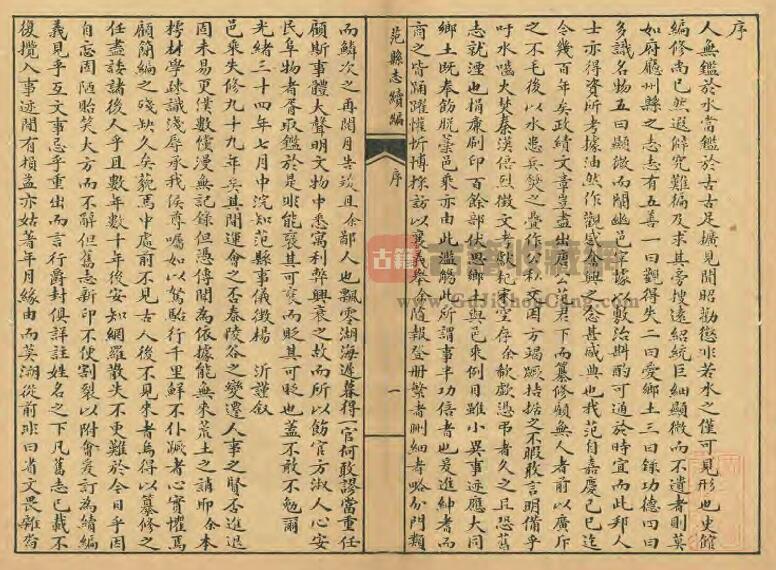 序
人無鑑於水當鑑於古古足擴見聞昭勸懲非若水之僅可見形也史館
編修尚已然遐歸究難徧及求其旁搜遠紹統巨細顯微而不遺者則莫
如府廳州縣之志志有五善一曰觀得失二曰愛鄉土三曰錄功德四曰
多識名物五曰顯微而闡幽邑宰據以敷治斟酌可通於時宜而此邦人
士亦得資所考據油然作觀感奮興之念甚盛典也我范自嘉慶己巳迄
今幾百年矣政績文章豈盡出廣公君下而纂修顧無人者前以廣斥
之不毛後以水患兵燹之疊作公私交困方竭蹶拮据之不暇敢言明備乎
吁水嚙火焚秦漢倍烈徵文考獻杞宋空存余欷歔憑弔者久之且恐舊
志就湮也捐廉刷印百餘部伏思鄉志與邑乘例目雖小異事迹應大同
鄉土既奉飭脫藁邑乘亦由此濫觴此所謂事半功倍者也爰進紳耆而
商之皆踴躍懽忻博採訪以襄義舉余隨報登冊繁者刪細者略分門類
范縣志續編
序
一
而鱗次之再閱月告竣且余鄙人也飄零湖海遲暮得一官何敢謬當重任
顧斯事體大聲明文物中悉寓利弊興衰之故而所以飭官方淑人心安
民阜物者胥取鑑於是非能褒其可褒而貶其可貶也蓋不敢不勉爾
光緒三十四年七月中浣知范縣事儀徵楊 沂謹叙
邑乘失修九十九年矣其間運會之否泰陵谷之變遷人事之賢否進退
固未易更僕數慬漫無記錄但憑傳聞為依據能無來荒土之誚耶余本
樗材學疎識淺辱承我侯尊囑如以駑駘行千里鮮不仆蹶者心實懼焉
顧簡編之殘缺久矣菀馬中處前不見古人後不見來者烏得以纂修之
任盡諉諸後人乎且數年數十年後安知網羅散失不更難於今日乎因
自忘固陋貽笑大方而不辭但舊志新印不便割裂以附會爰訂為續編
義見乎互文事忌乎重出而言行爵封俱詳註姓名之下凡舊志已載不
復攬入事迹間有損益亦姑著年月緣由而莫湖從前非曰省文畏雜沓
古籍
古籍收藏网
www.GdJiShouCang.Com